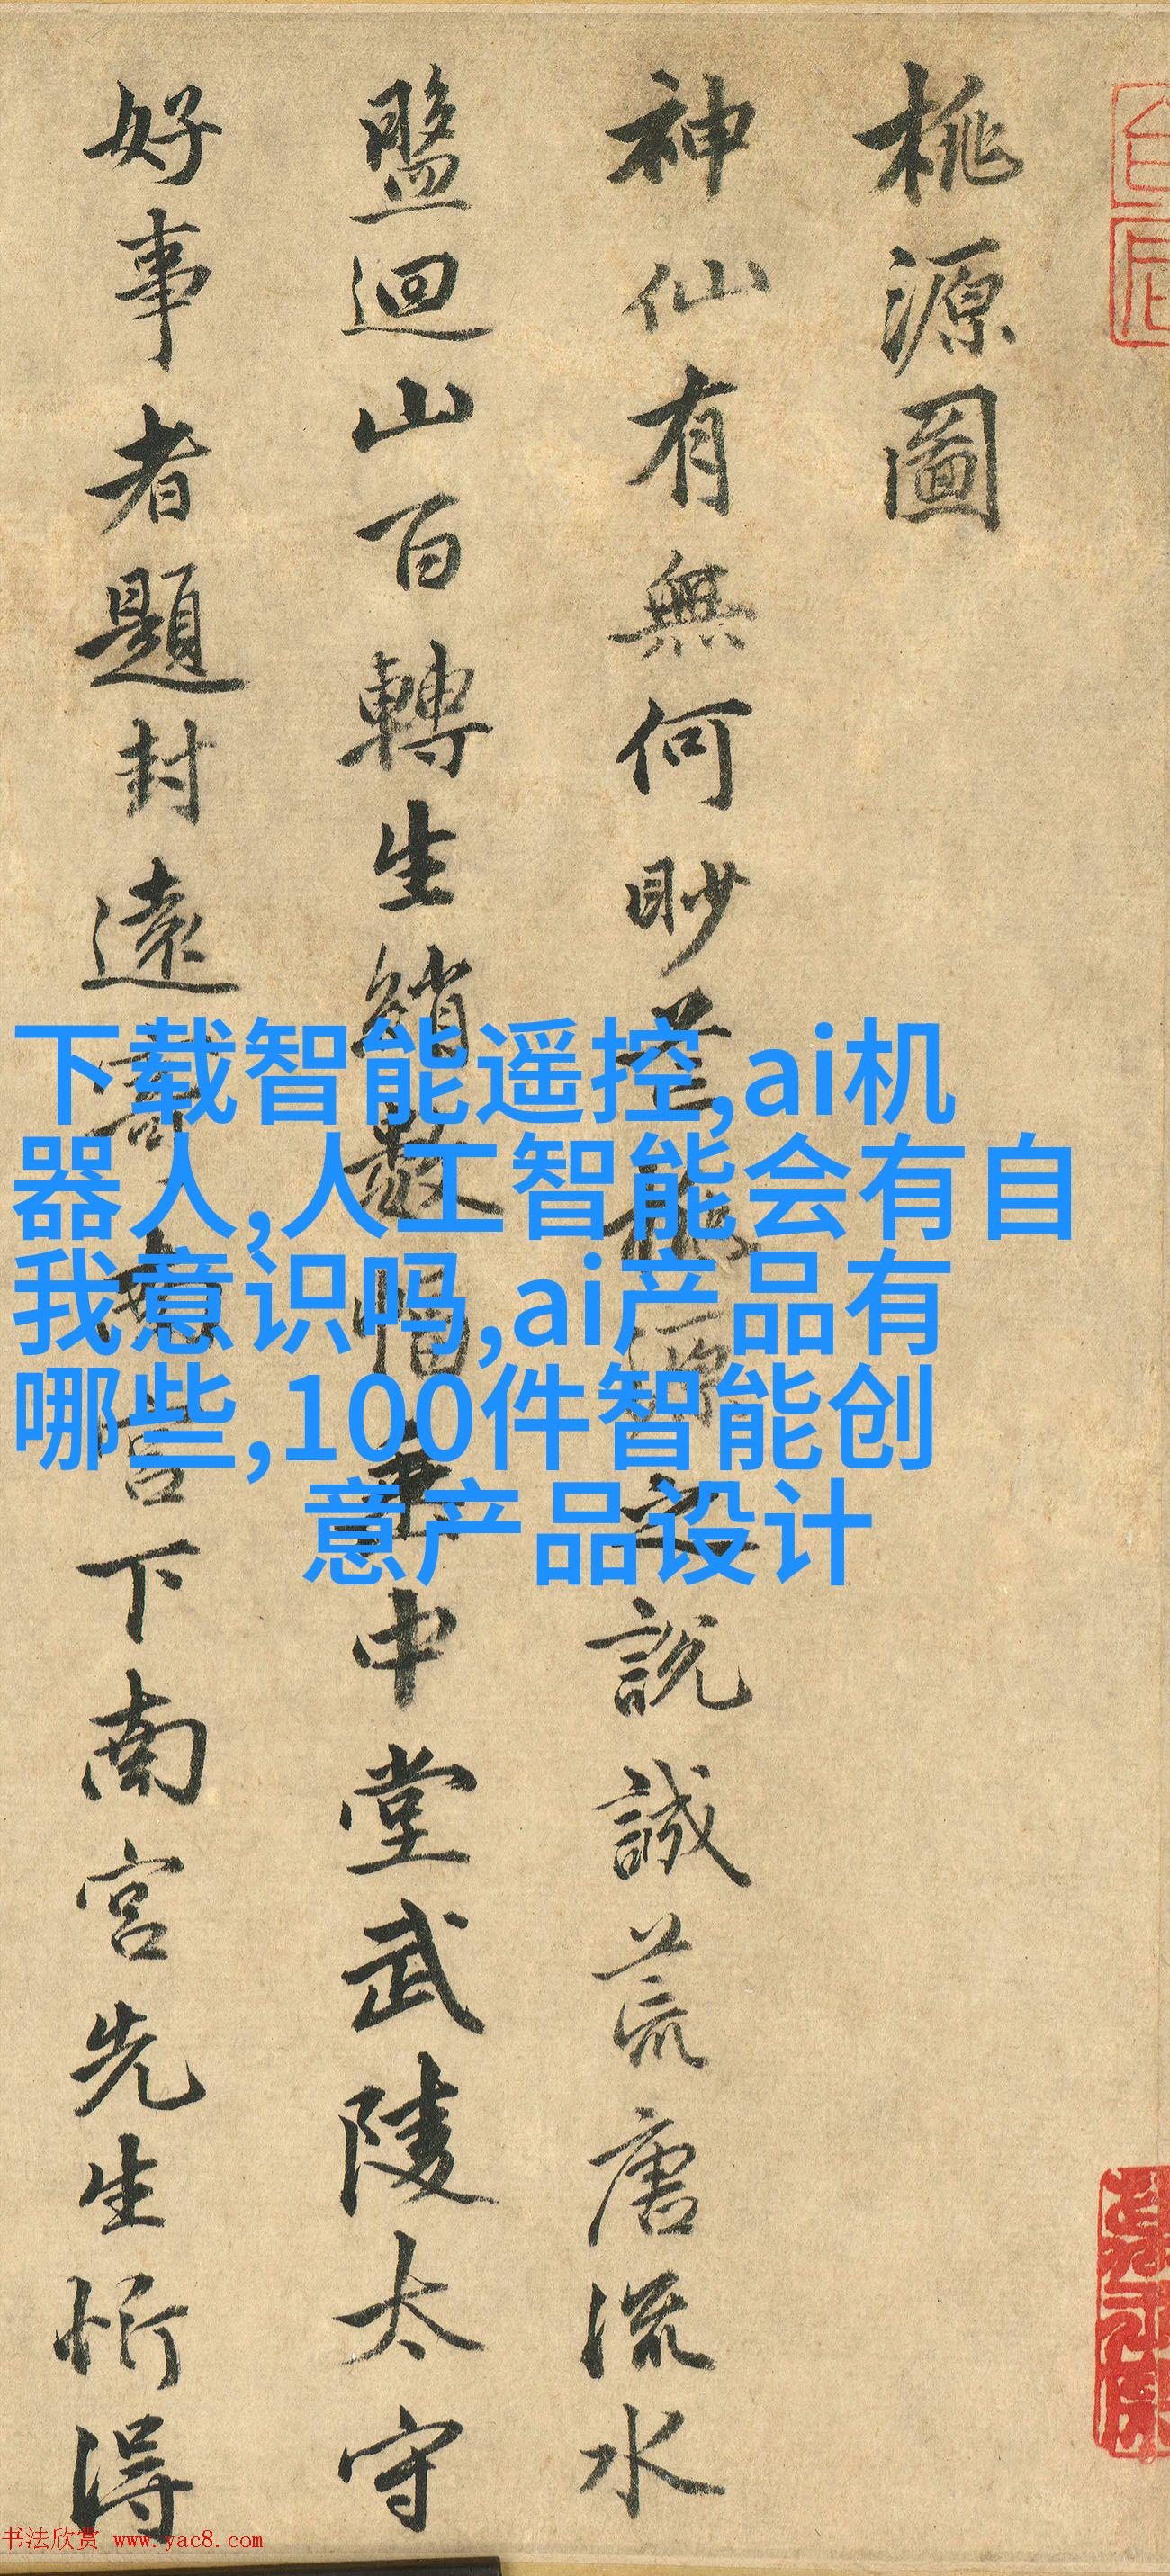 桃源圖
神仙有無何眇芒桃源之說誠荒唐流水
盤迴山百轉生綃數幅垂中堂武陵太守
好事者題封遠寄南宮下南宮先生忻得
下载智能遥控,ai机
器人,人工智能会有自
我意识吗,ai产品有
哪些,100件智能创
意产品设计
书法欣赏 www.yac8.com